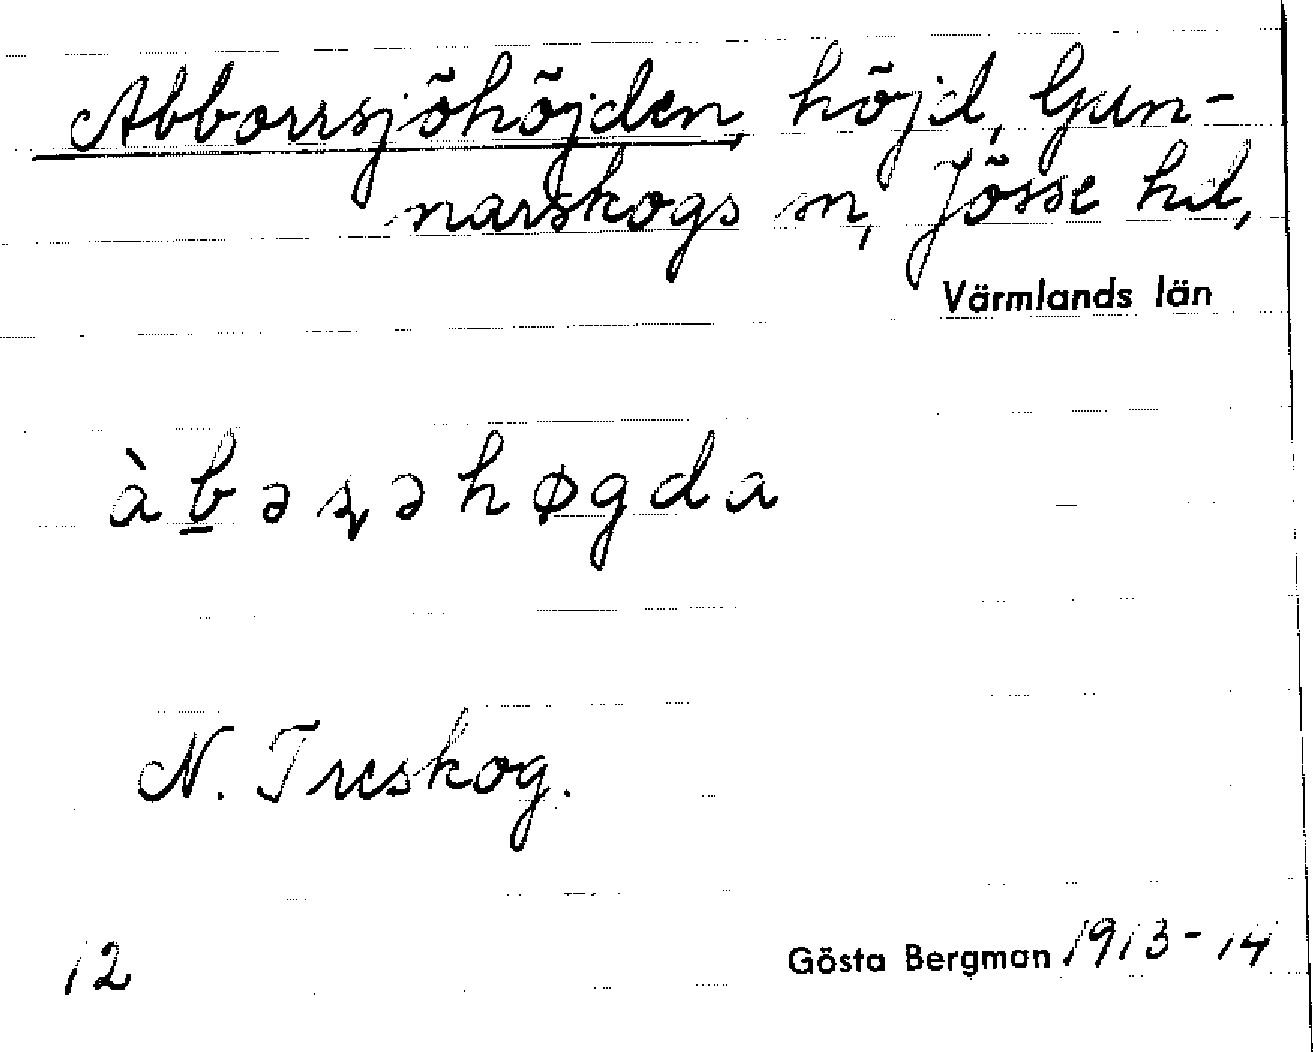 Abborrsjöhöjden, höjd, Gun-
narskogs sn, Jösse hd,
Värmlands län
àb̲əʂəhøgda
N. Treskog.
12
Gösta Bergman 1913-14